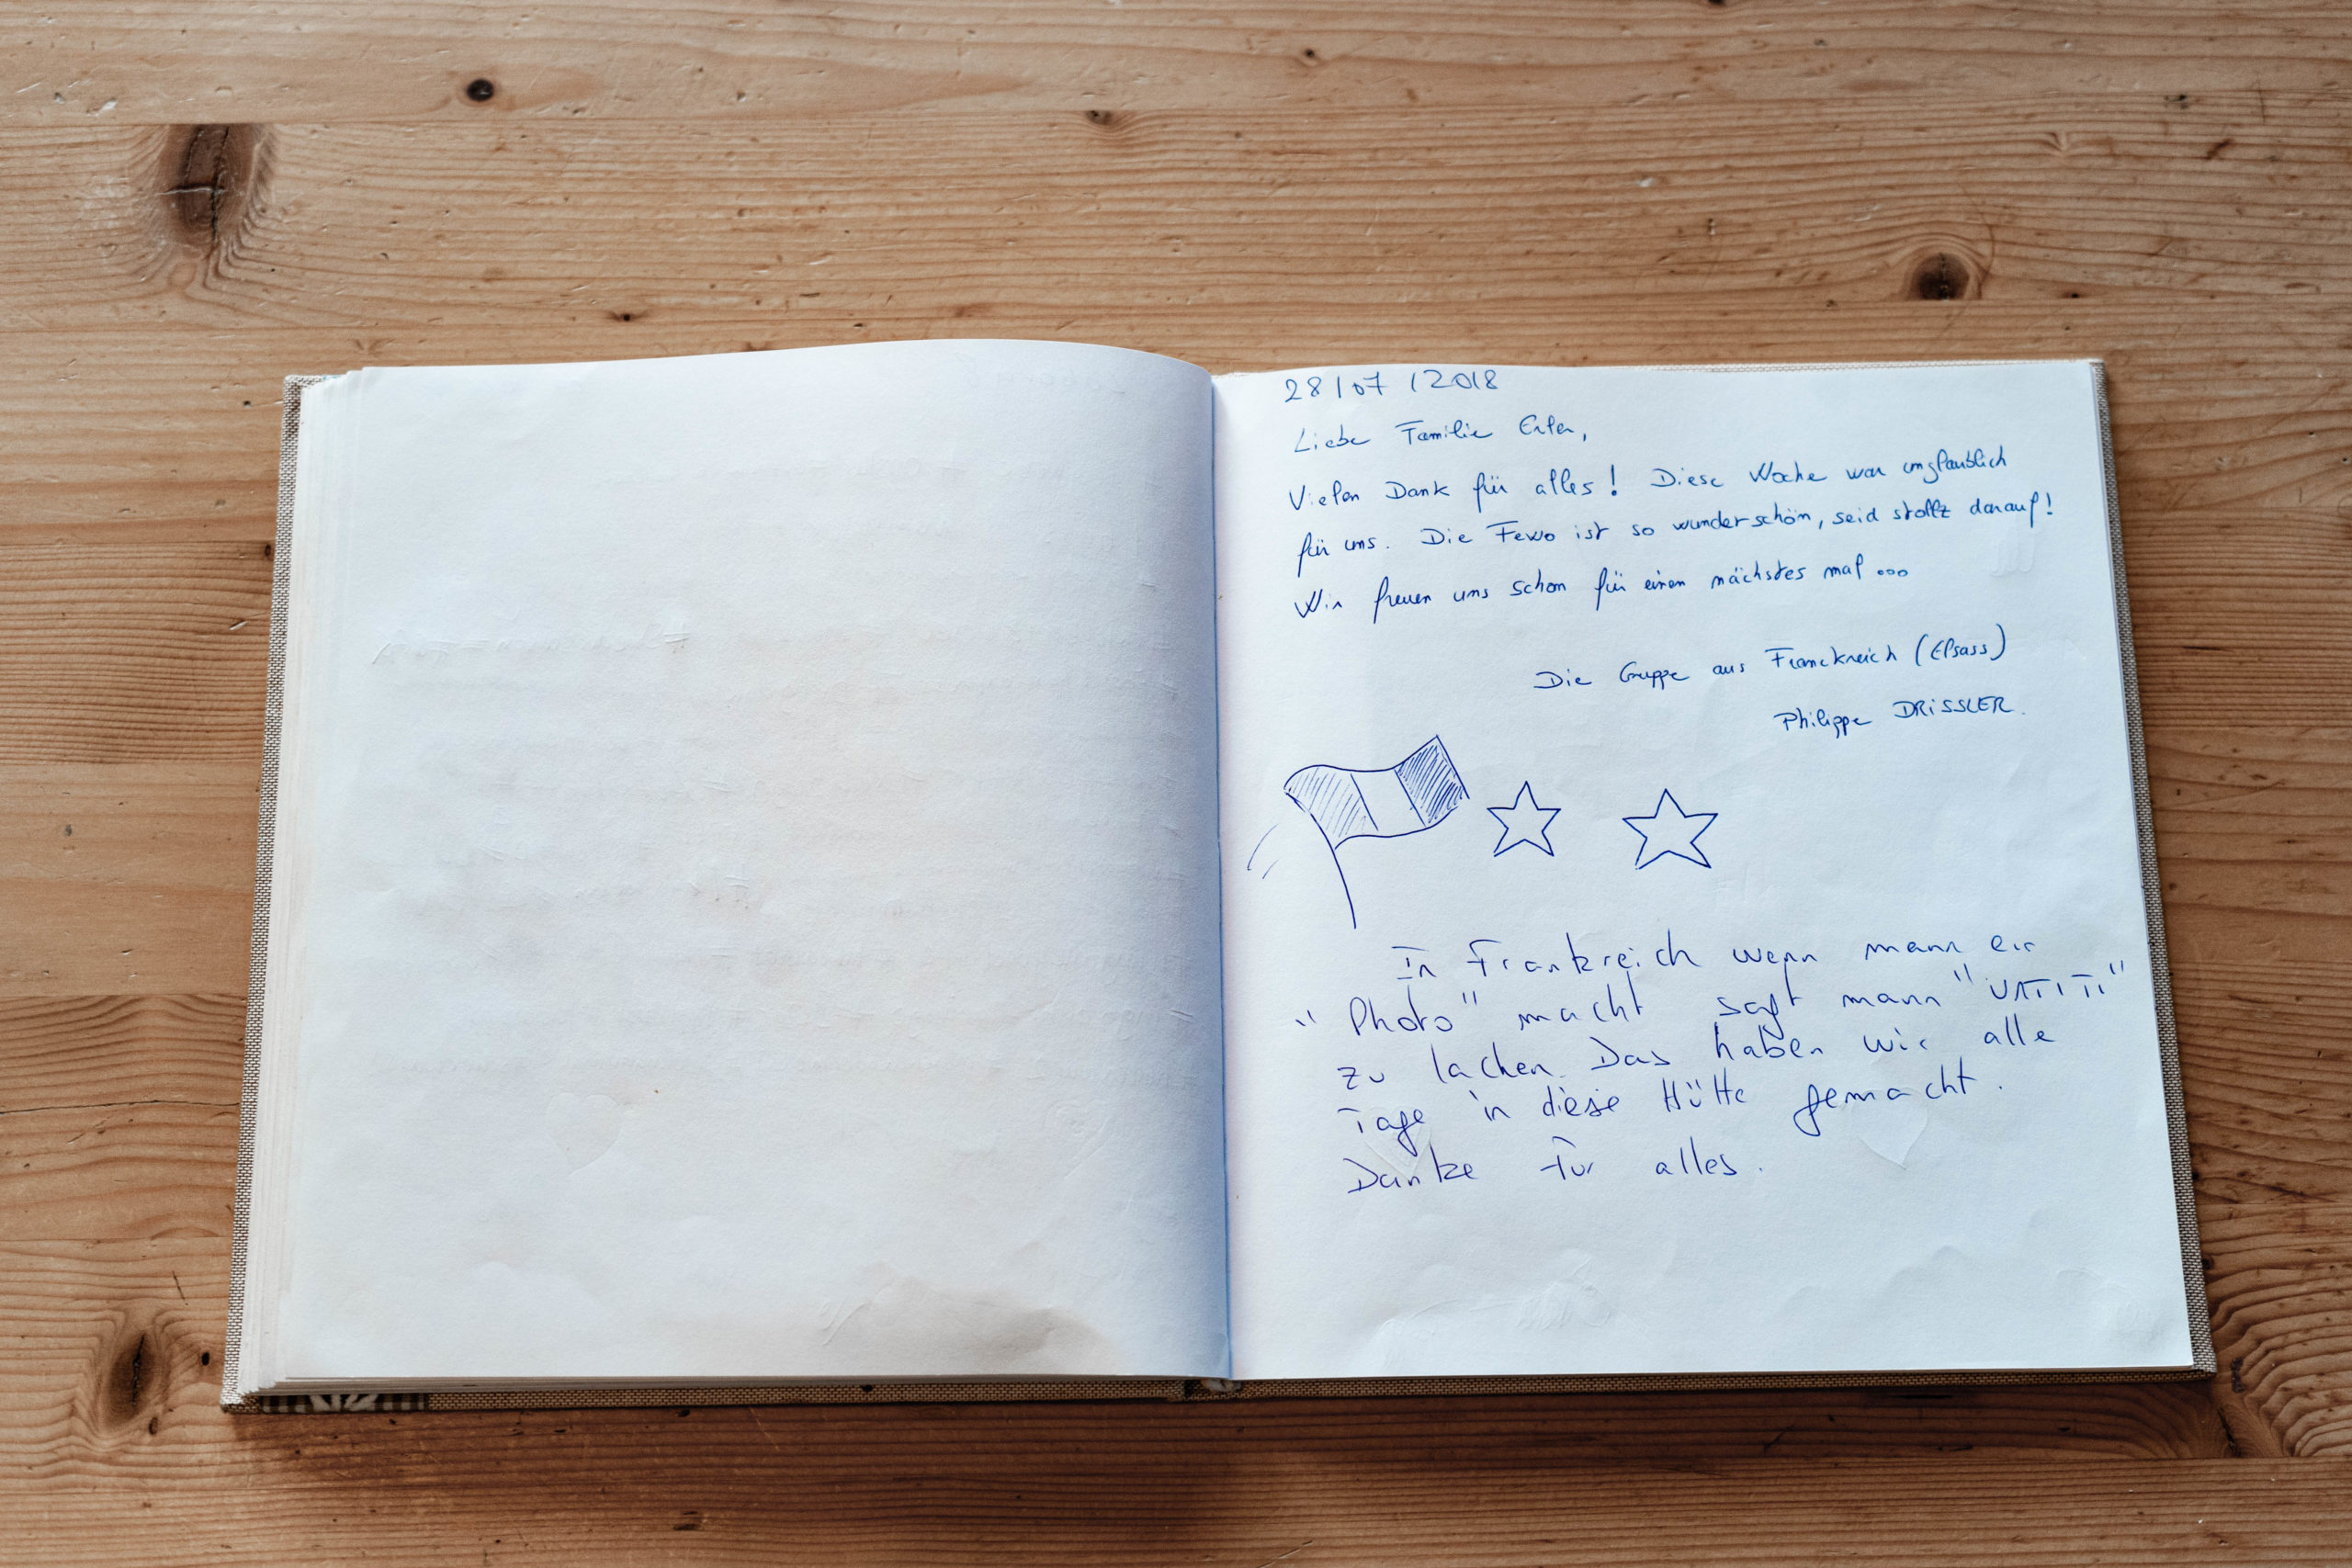 28/07/2018
Liebe Familie Erler,
Vielen Dank für alles! Diese Woche war unglaublich
für uns. Die Fewo ist so wunderschön, seid stollz darauf!
Wir freuen uns schon für einen nächstes mal ...
Die Gruppe aus Franckreich (Elsass)
Philippe DRISSLER.
In Frankreich wenn mann ein
"Photo" macht sagt mann
zu lachen. Das haben wir alle
Tage in diese Hütte gemacht.
Danke für alles.